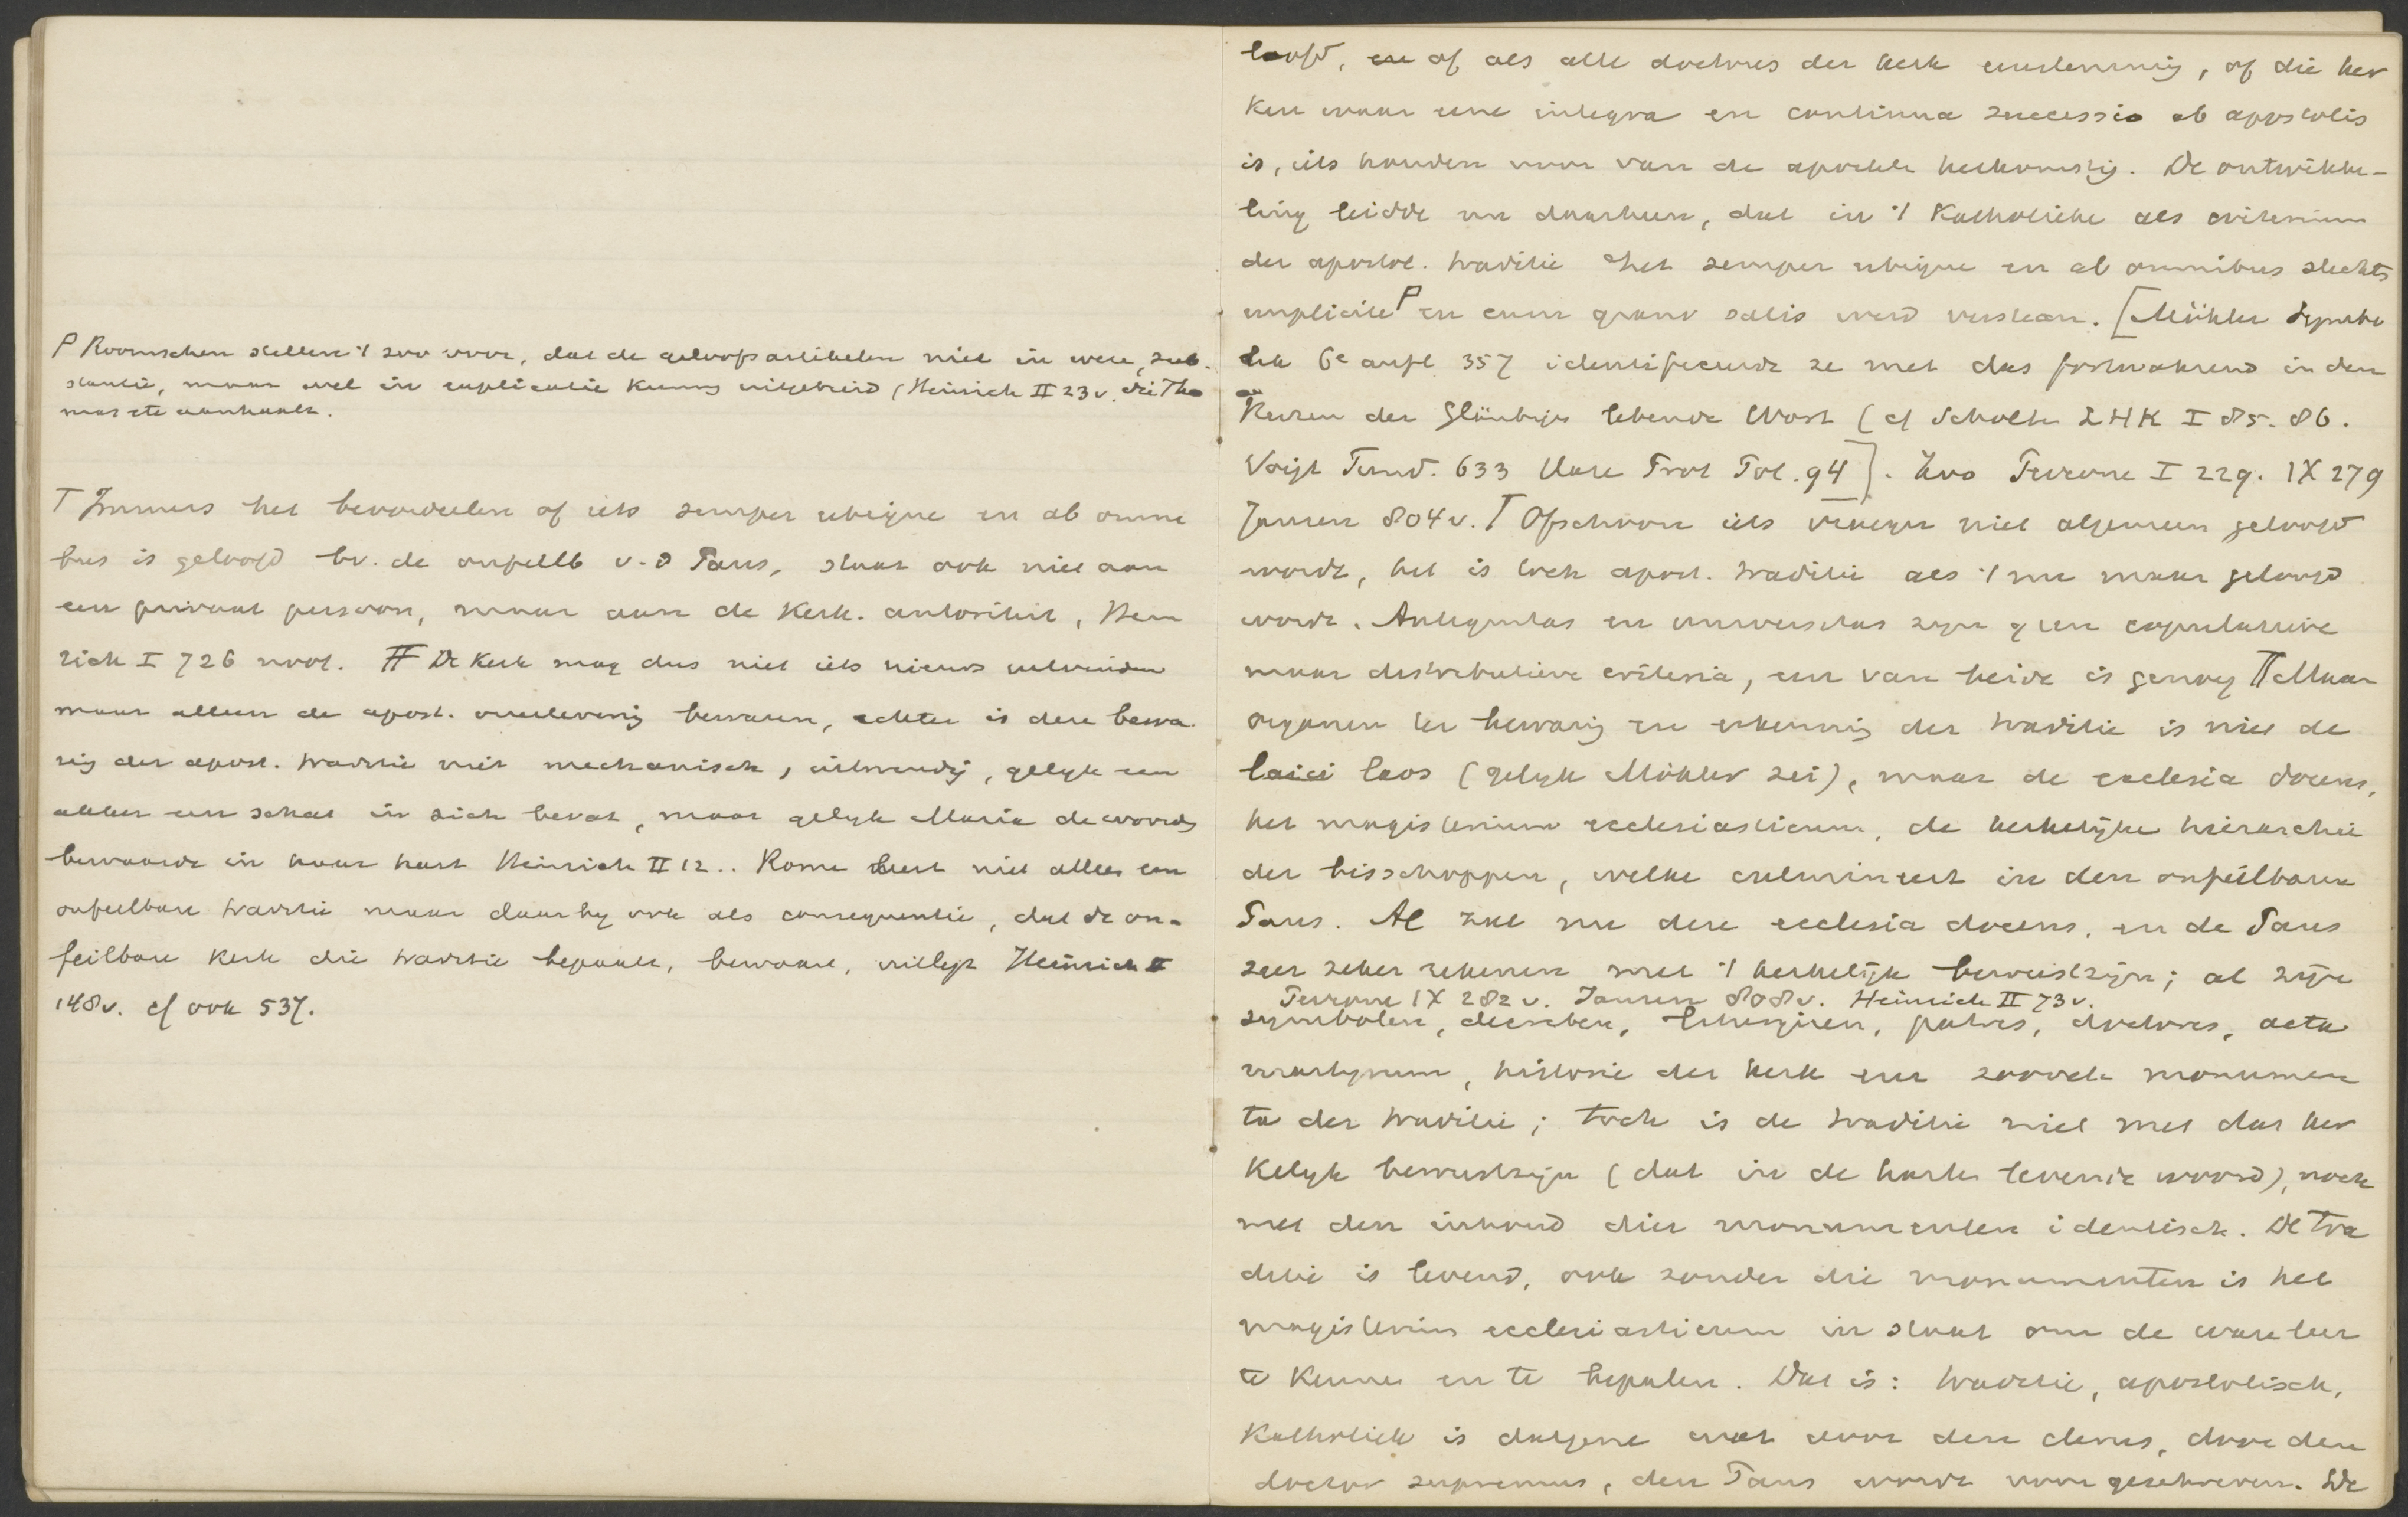 Ꝑ Roomschen stellen 't zoo voor, dat de geloofsartikelen niet in wese, sub-
stantie, maar wel in explicatie kunnen uitgebreid (Heinrich II 23 v. die Tho
mas etc aanhaalt.
T Immers het beoordeelen of iets semper ubique en ab omni
bus is geloofd bv. de onfeilb v. d Paus, staat ook niet aan
een privaat persoon, maar aan de kerk. autoriteit, Hein
rich I 726 noot. TT De kerk mag dus niet iets nieuws uitvinden
maar alleen de apost. overlevering bewaren, echter is deze bewa
ring der apost. traditie niet mechanisch, uitwendig, gelyk een
akker een schat in zich bevat, maar gelyk Maria de woorden
bewaarde in haar hart Heinrich II 12.. Rome leert niet alleen een
onfeilbare traditie maar daarby ook als consequentie, dat de on-
feilbare kerk die traditie bepaalt, bewaart, uitlegt Heinrich II
148v. cf ook 537.
loofd, en of als alle doctores der kerk eenstemmig, of die ker
ken waar eene integra en continua successio ab apostolis
is, iets houden voor van de apostelen herkomstig. De ontwikke-
ling leidde nu daarheen, dat in 't Katholieke als criterium
der apostol. traditie het semper ubique en ab omnibus slechts
implicite Ꝑ en cum grano salis werd verstaan. [Möhler Symbo
lik 6e aufl 357 identificeerde ze met das fortwahrend in den
Herzen der Gläubigen lebende Wort (cf Scholten LHK I 85. 86.
Voigt Fund. 633 Hase Prot Pol. 94]. Zoo Perrone I 229. IX 279
Jansen 804 v. T Ofschoon iets vroeger niet algemeen geloofd
werde, het is toch apost. traditie als 't nu maar geloofd
wordt. Antiquitas en universitas zyn geen copulatieve
maar distributieve criteria, een van beide is genoeg TT Maar
orgaan ter bewaring en erkenning der traditie is niet de
laici laos (gelyk Möhler zei), maar de ecclesia docens,
het magisterium ecclesiasticum, de kerkelijke hierarchie
der bisschoppen, welke culmineert in den onfeilbaren
Paus. Al zal nu deze ecclesia docens, en de Paus
zeer zeker rekenen met 't kerkelijk bewustzijn; al zijn
Perrone IX 282 v. Jansen 808v. Heinrich II 73 v.
symbolen, decreten, liturgieen, patres, doctores, acta
martyrum, historie der kerk een zoovele monumen
ta der traditie; toch is de traditie niet met dat ker
kelyk bewustzijn (dat in de harten levende woord), noch
met den inhoud dier monumenten identisch. De tra
ditie is levend, ook zonder die monumenten is het
magisterium ecclesiasticum in staat om de ware leer
te kennen en te bepalen. Dat is: traditie, apostolisch,
Katholiek is datgene wat door den clerus, door den
doctor supremus, den Paus wordt voorgeschreven. De